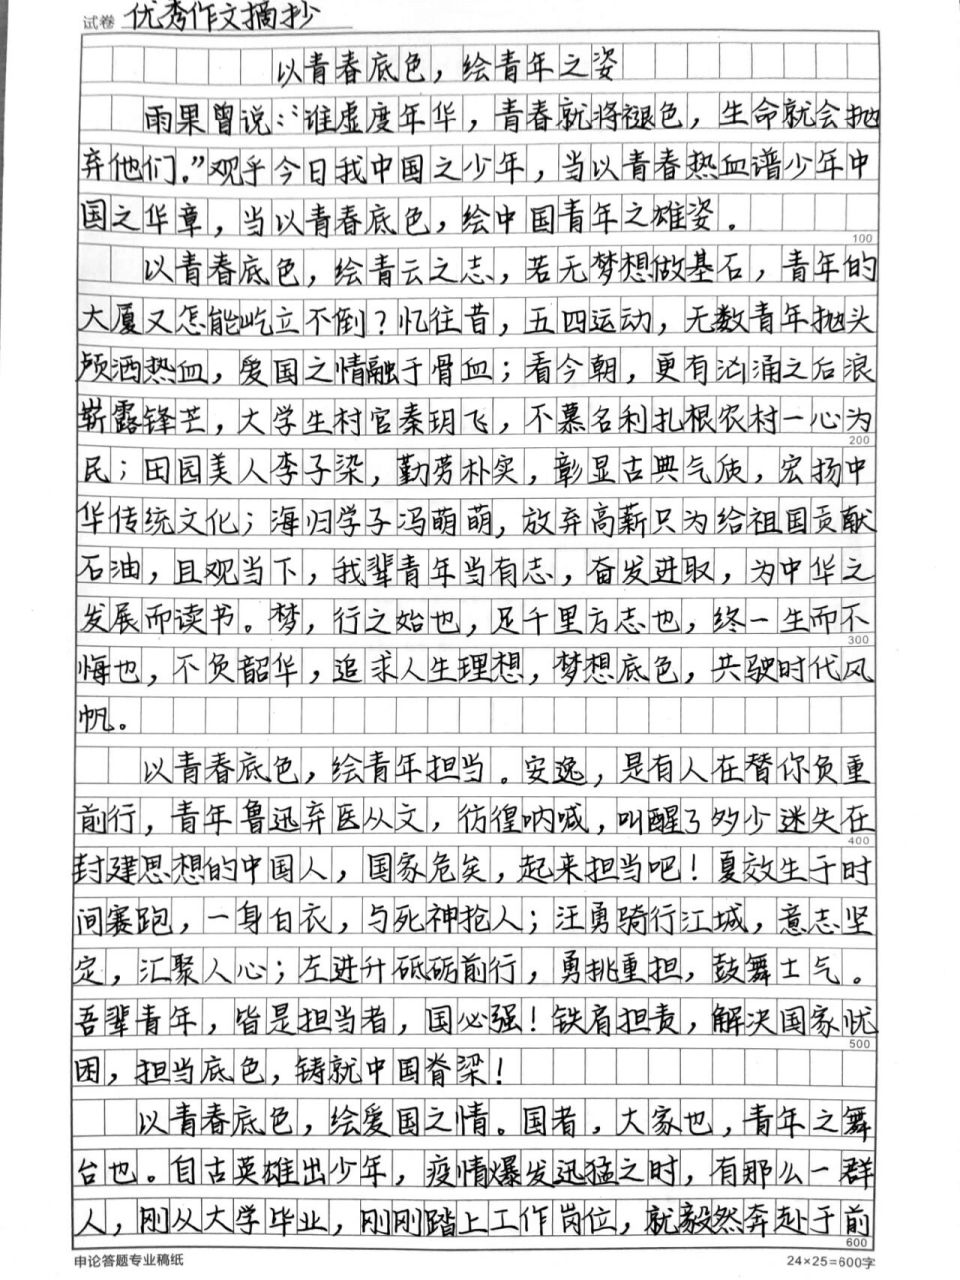 试卷 优秀作文摘抄
以青春底色，绘青年之姿
雨果曾说：“谁虚度年华，青春就将褪色，生命就会抛
弃他们。”观乎今日我中国之少年，当以青春热血谱少年中
国之华章，当以青春底色，绘中国青年之雄姿。
100
以青春底色，绘青云之志，若无梦想做基石，青年的
大厦又怎能屹立不倒？忆往昔，五四运动，无数青年抛头
颅洒热血，爱国之情融于骨血；看今朝，更有汹涌之后浪
崭露锋芒，大学生村官秦玥飞，不慕名利扎根农村一心为
200
民；田园美人李子染，勤劳朴实，彰显古典气质，宏扬中
华传统文化；海归学子冯萌萌，放弃高薪只为给祖国贡献
石油，且观当下，我辈青年当有志，奋发进取，为中华之
发展而读书。梦，行之始也，足千里方志也，终一生而不
300
悔也，不负韶华，追求人生理想，梦想底色，共驶时代风
帆。
以青春底色，绘青年担当。安逸，是有人在替你负重
前行，青年鲁迅弃医从文，彷徨呐喊，叫醒了多少迷失在
400
封建思想的中国人，国家危矣，起来担当吧！夏效生于时
间赛跑，一身白衣，与死神抢人；汪勇骑行江城，意志坚
定，汇聚人心；左进升砥砺前行，勇挑重担，鼓舞士气。
吾辈青年，皆是担当者，国必强！铁肩担责，解决国家忧
500
困，担当底色，铸就中国脊梁！
以青春底色，绘爱国之情。国者，大家也，青年之舞
台也。自古英雄出少年，疫情爆发迅猛之时，有那么一群
人，刚从大学毕业，刚刚踏上工作岗位，就毅然奔赴于前
600
申论答题专业稿纸 24×25=600字